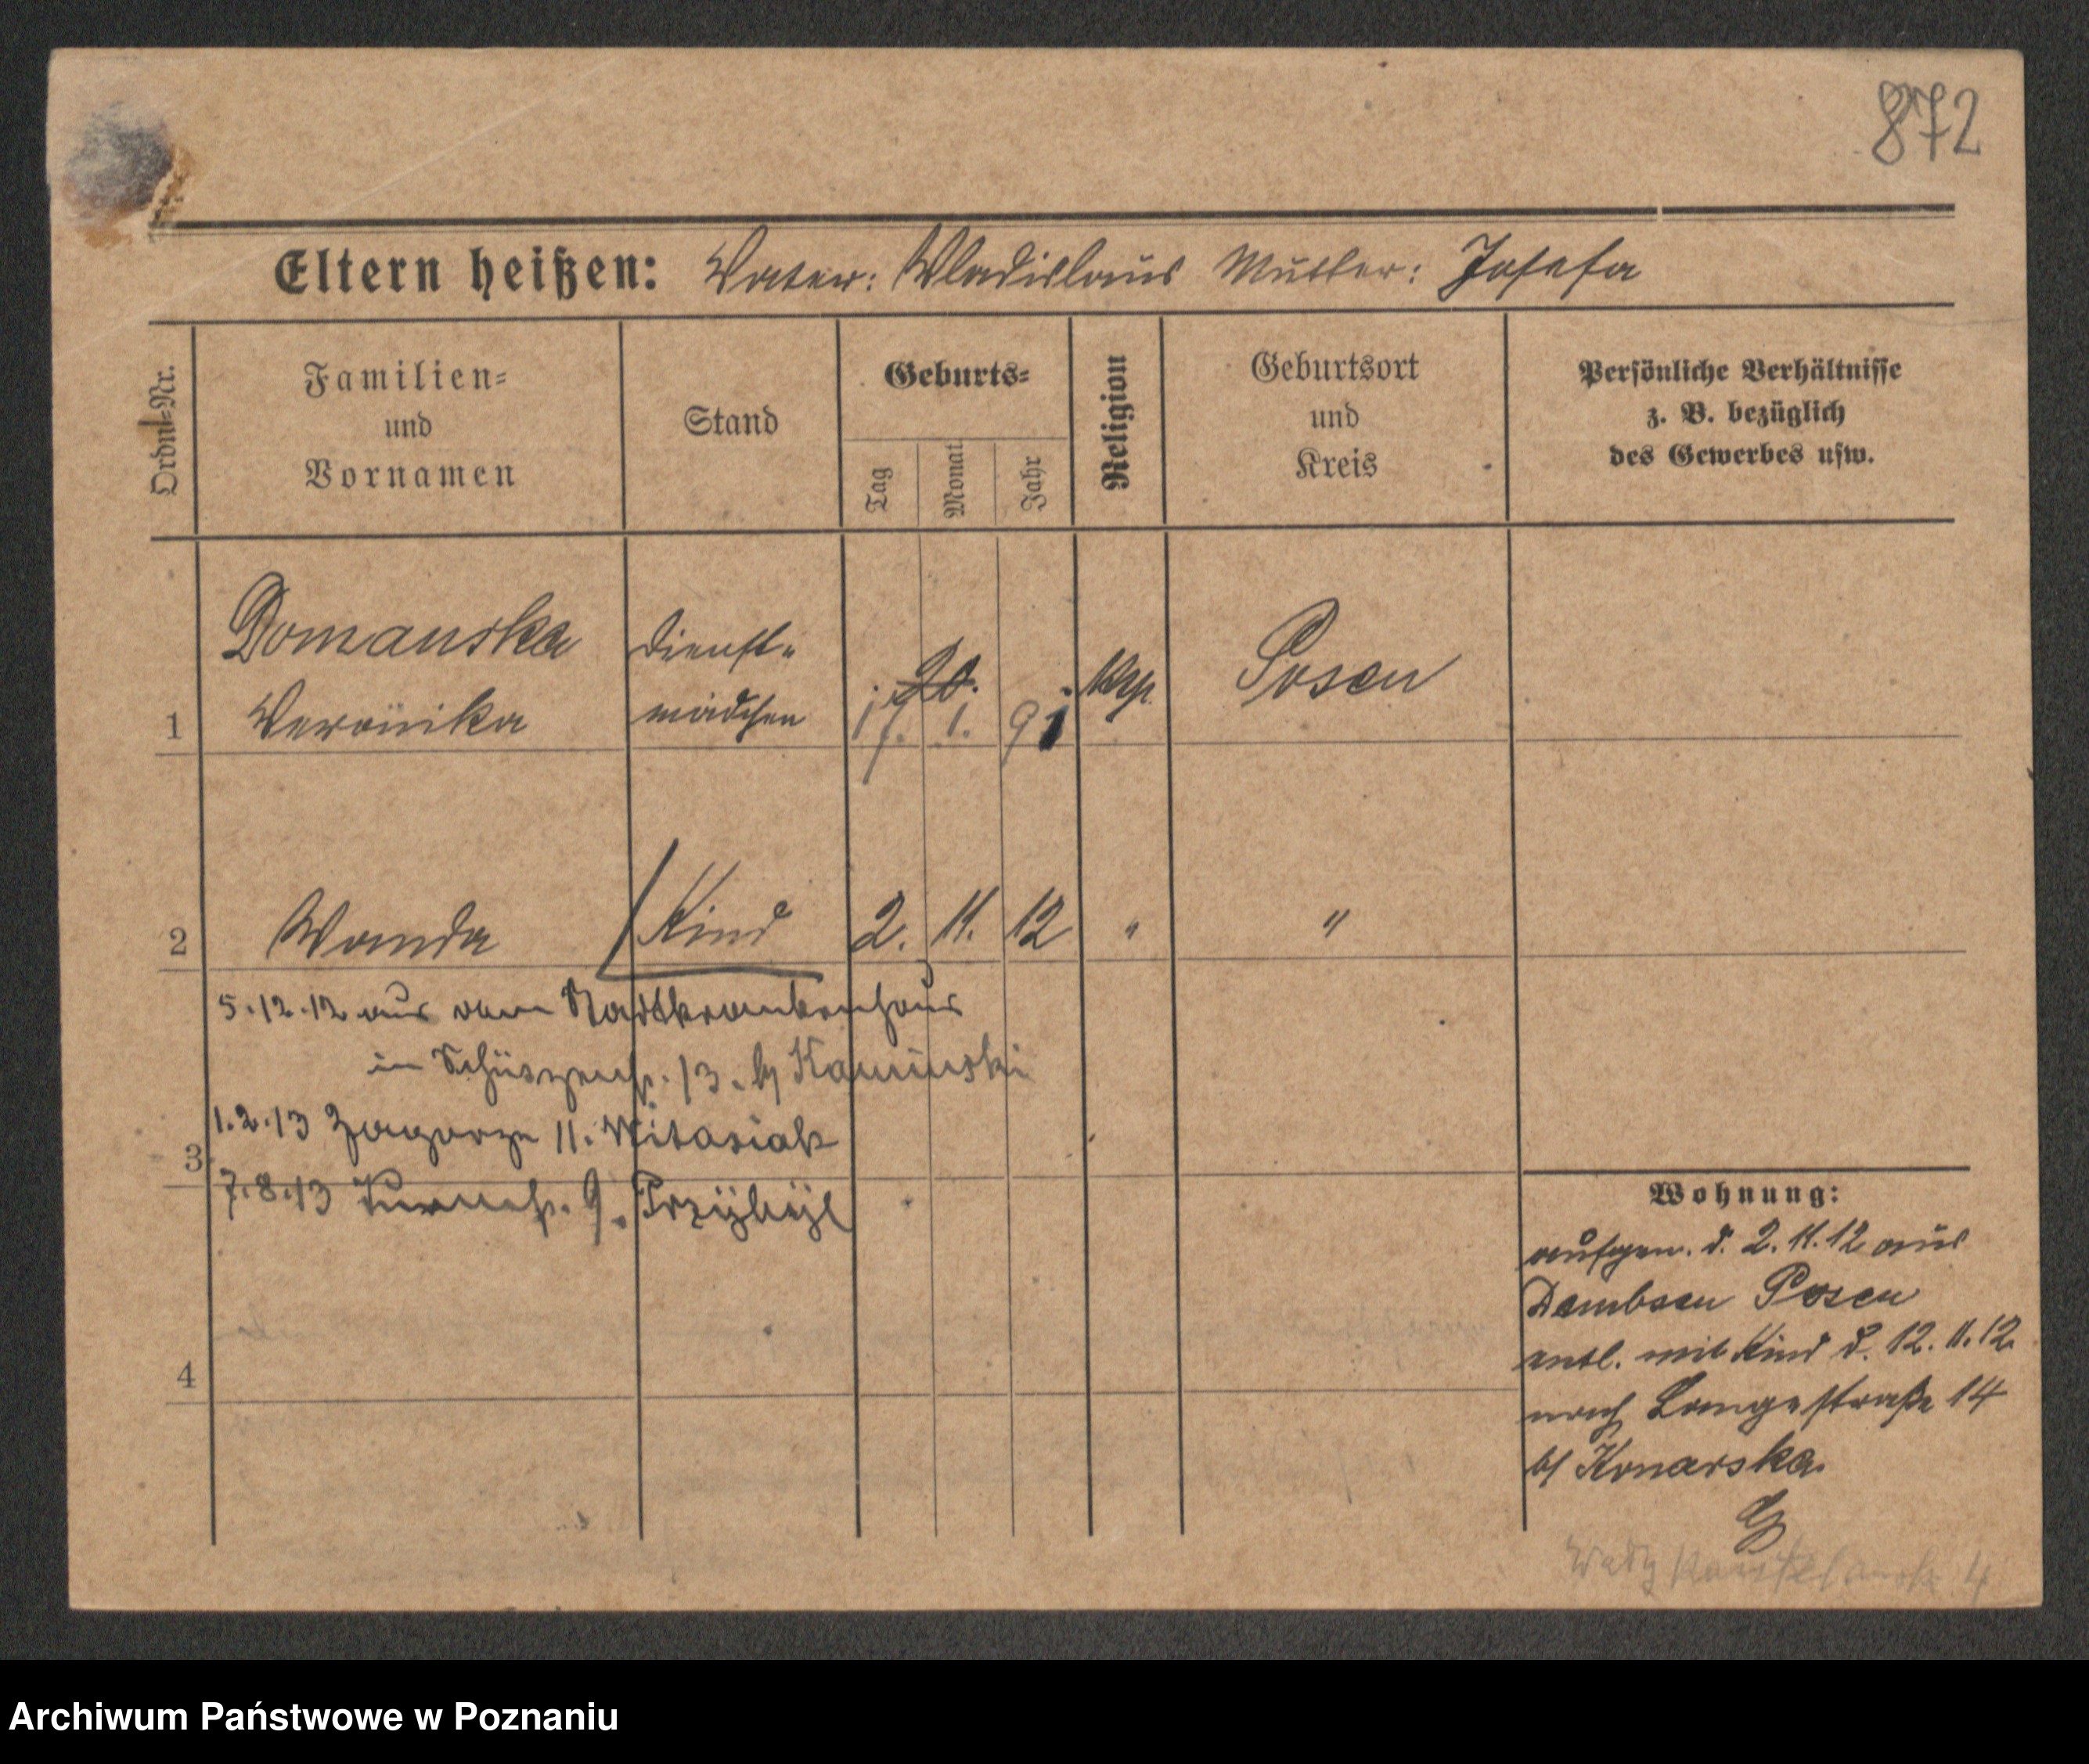 872
Eltern heißen: Vater: Wladislaus Mutter: Josefa
Ordn=Nr.
Familien=
und
Vornamen
Stand
Geburts=
Tag
Monat
Jahr
Religion
Geburtsort
und
Kreis
Persönliche Verhältnisse
z. B. bezüglich
des Gewerbes usw.
1
Domanska
Veronika
Dienst=
mädchen
20.
17. 1. 91
Posen
2
Wanda
Kind
2. 11. 12
"
"
5.12.12 aus dem Stadtkrankenhaus
in Schützenstr. 13. b/ Kaminski
1.2.13 Zagorze 11. Witasiak
3
7.8.13 9. Przÿbÿl
4
Wohnung:
aufgen. d. 2.11.12 aus
Dembsen Posen
entl. mit Kind d. 12.11.12
nach Langestraße 14
b/ Konarska.
4
Archiwum Państwowe w Poznaniu